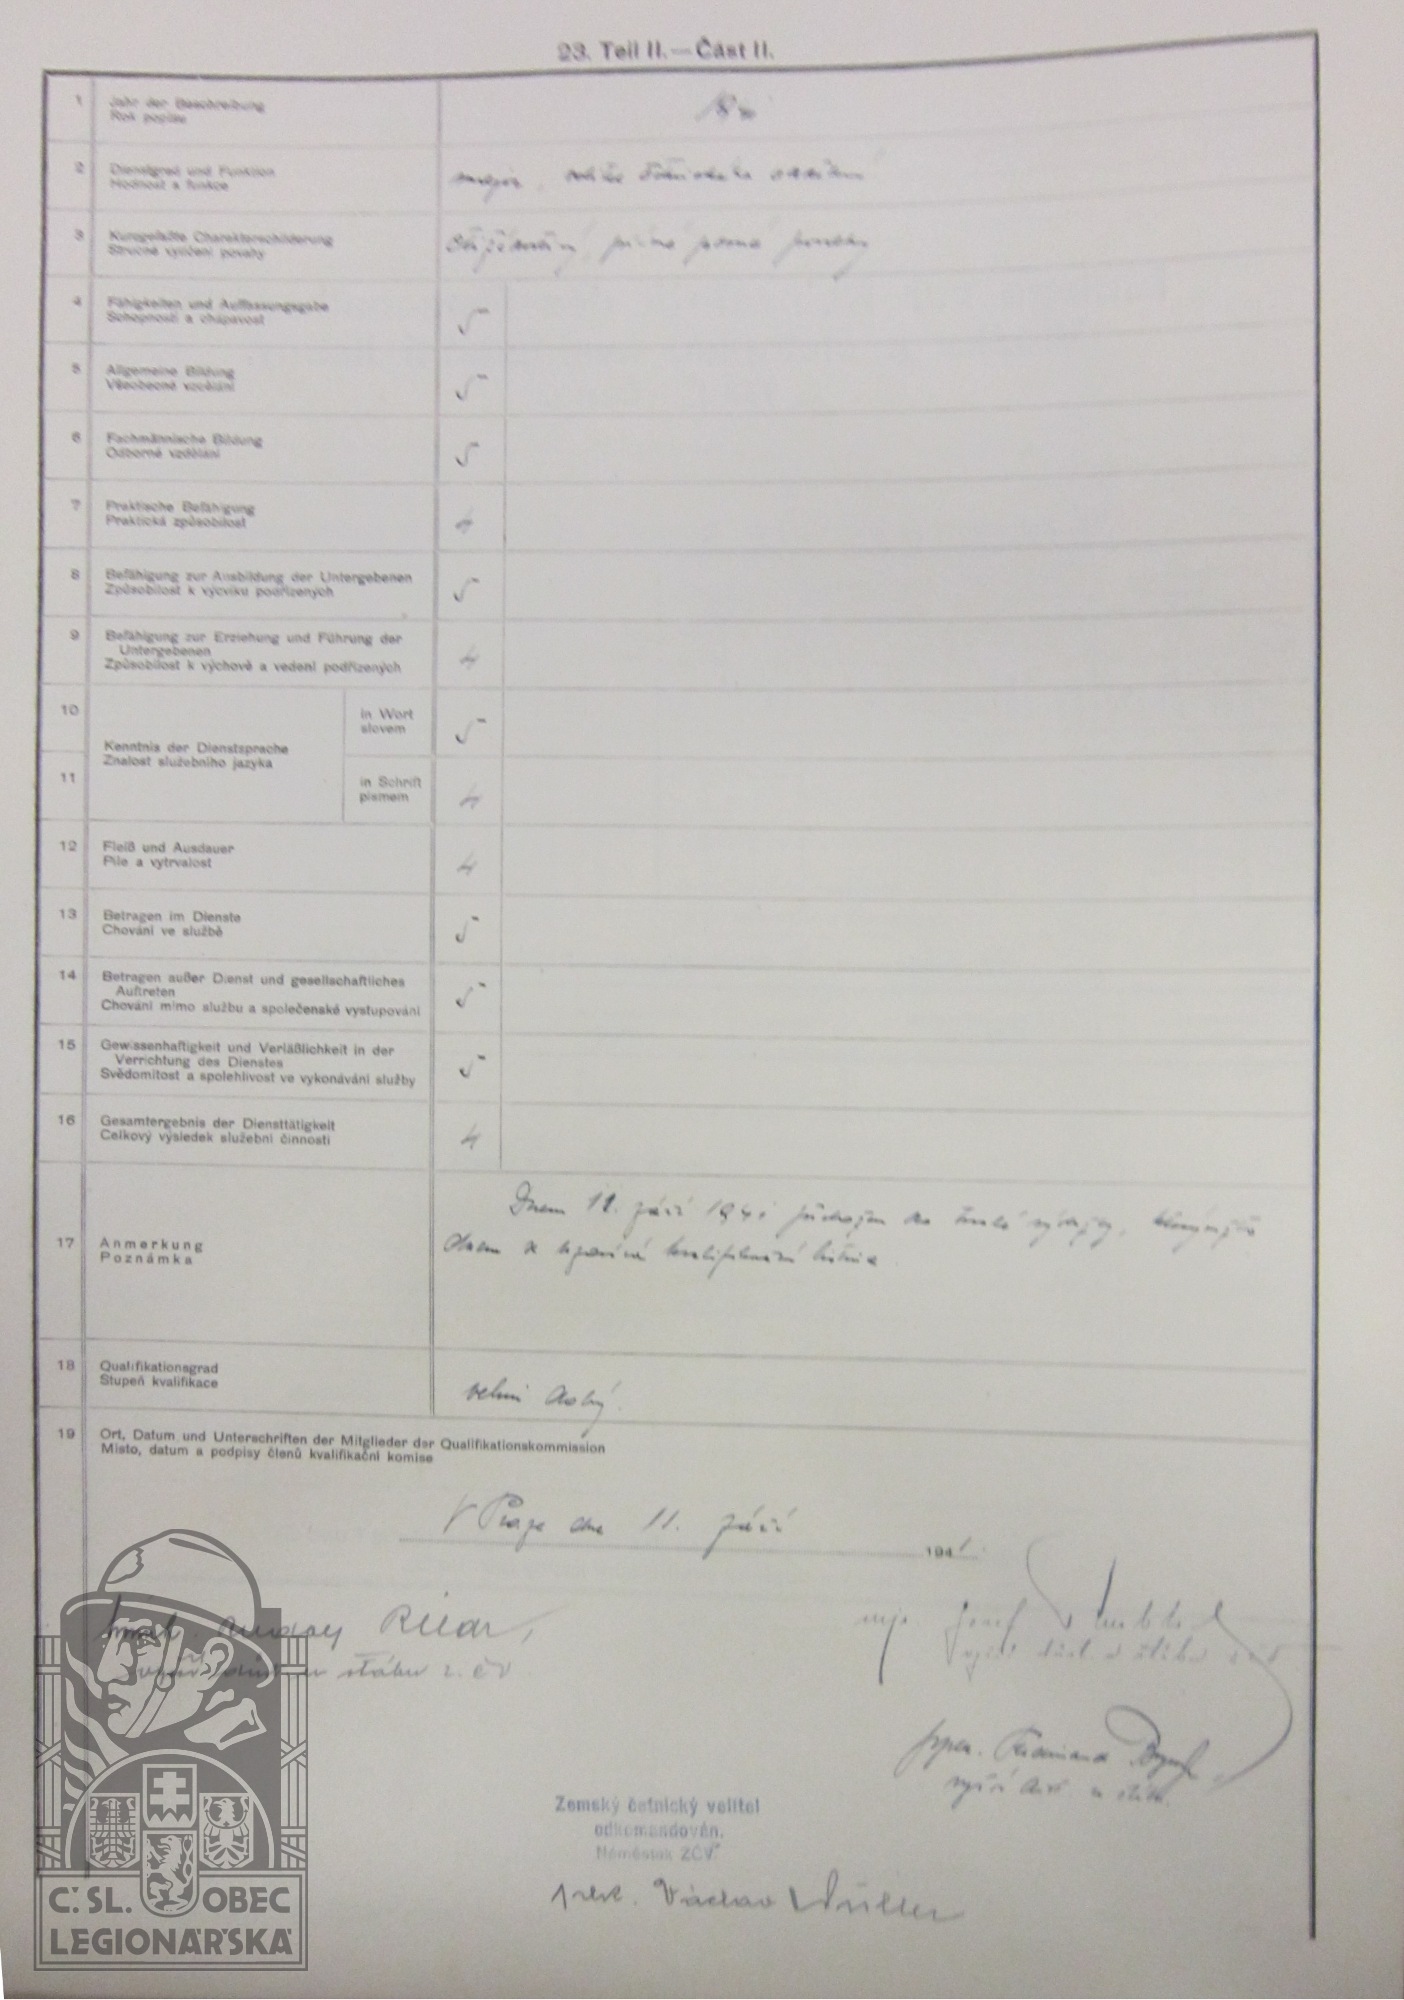 23. Teil II. — Část II.
1 Jahr der Beschreibung
Rok popisu
2 Dienstgrad und Funktion
Hodnost a funkce
major, velitel oddělení
3 Kurzgefaßte Charakterschilderung
Stručné vylíčení povahy
povahy
4 Fähigkeiten und Auffassungsgabe
Schopnosti a chápavost
5
5 Allgemeine Bildung
Všeobecné vzdělání
5
6 Fachmännische Bildung
Odborné vzdělání
5
7 Praktische Befähigung
Praktická způsobilost
4
8 Befähigung zur Ausbildung der Untergebenen
Způsobilost k výcviku podřízených
5
9 Befähigung zur Erziehung und Führung der
Untergebenen
Způsobilost k výchově a vedení podřízených
4
10 in Wort
slovem
5
Kenntnis der Dienstsprache
Znalost služebního jazyka
11 in Schrift
písmem
4
12 Fleiß und Ausdauer
Píle a vytrvalost
4
13 Betragen im Dienste
Chování ve službě
5
14 Betragen außer Dienst und gesellschaftliches
Auftreten
Chování mimo službu a společenské vystupování
5
15 Gewissenhaftigkeit und Verläßlichkeit in der
Verrichtung des Dienstes
Svědomitost a spolehlivost ve vykonávání služby
5
16 Gesamtergebnis der Diensttätigkeit
Celkový výsledek služební činnosti
4
17 Anmerkung
Poznámka
Dnem 11. září 1941 na
dnem se uzavírá kvalifikační listina
18 Qualifikationsgrad
Stupeň kvalifikace
velmi dobrý.
19 Ort, Datum und Unterschriften der Mitglieder der Qualifikationskommission
Místo, datum a podpisy členů kvalifikační komise
V Praze dne 11. září 1941.
mjr. Josef
u štábu z. čv.
pplk. Ferdinand
vyšší důst. u
Zemský četnický velitel
odkomandován.
Náměstek ZČV
plk. Václav Müller
Č.SL. OBEC
LEGIONÁŘSKÁ